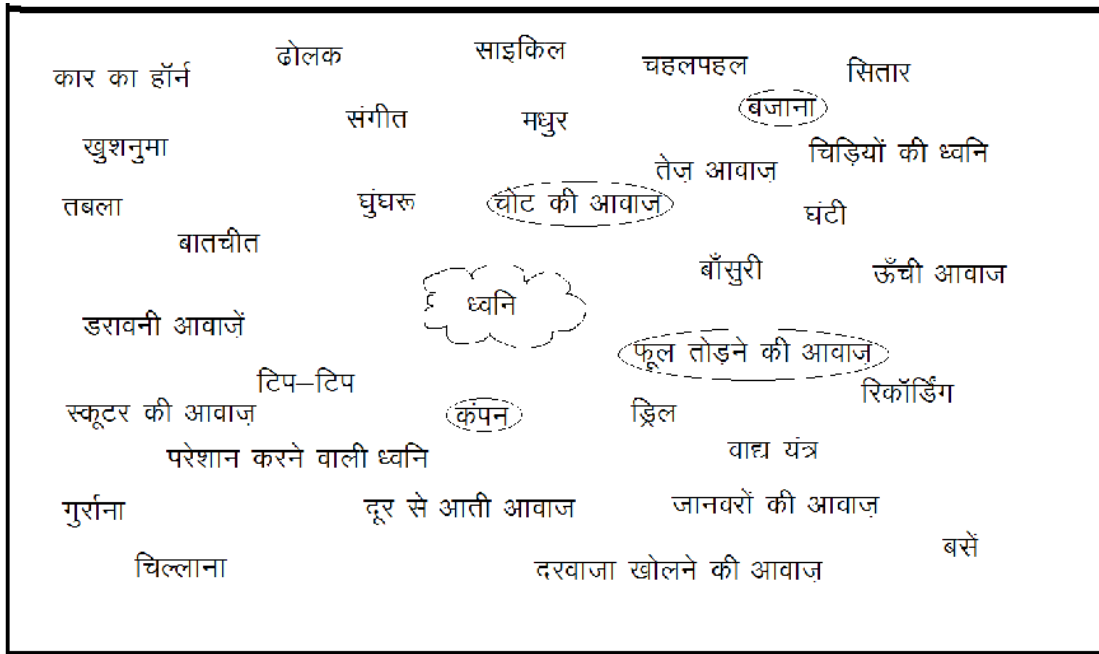 ढोलक
साइकिल
चहलपहल
सितार
कार का हॉर्न
बजाना
संगीत
मधुर
खुशनुमा
चिड़ियों की ध्वनि
तेज़ आवाज़
तबला
घुंघरू
चोट की आवाज़
घंटी
बातचीत
बाँसुरी
ऊँची आवाज
ध्वनि
डरावनी आवाज़ें
फूल तोड़ने की आवाज़
टिप–टिप
रिकॉर्डिंग
स्कूटर की आवाज़
कंपन
ड्रिल
परेशान करने वाली ध्वनि
वाद्य यंत्र
गुर्राना
दूर से आती आवाज
जानवरों की आवाज़
बसें
चिल्लाना
दरवाजा खोलने की आवाज़